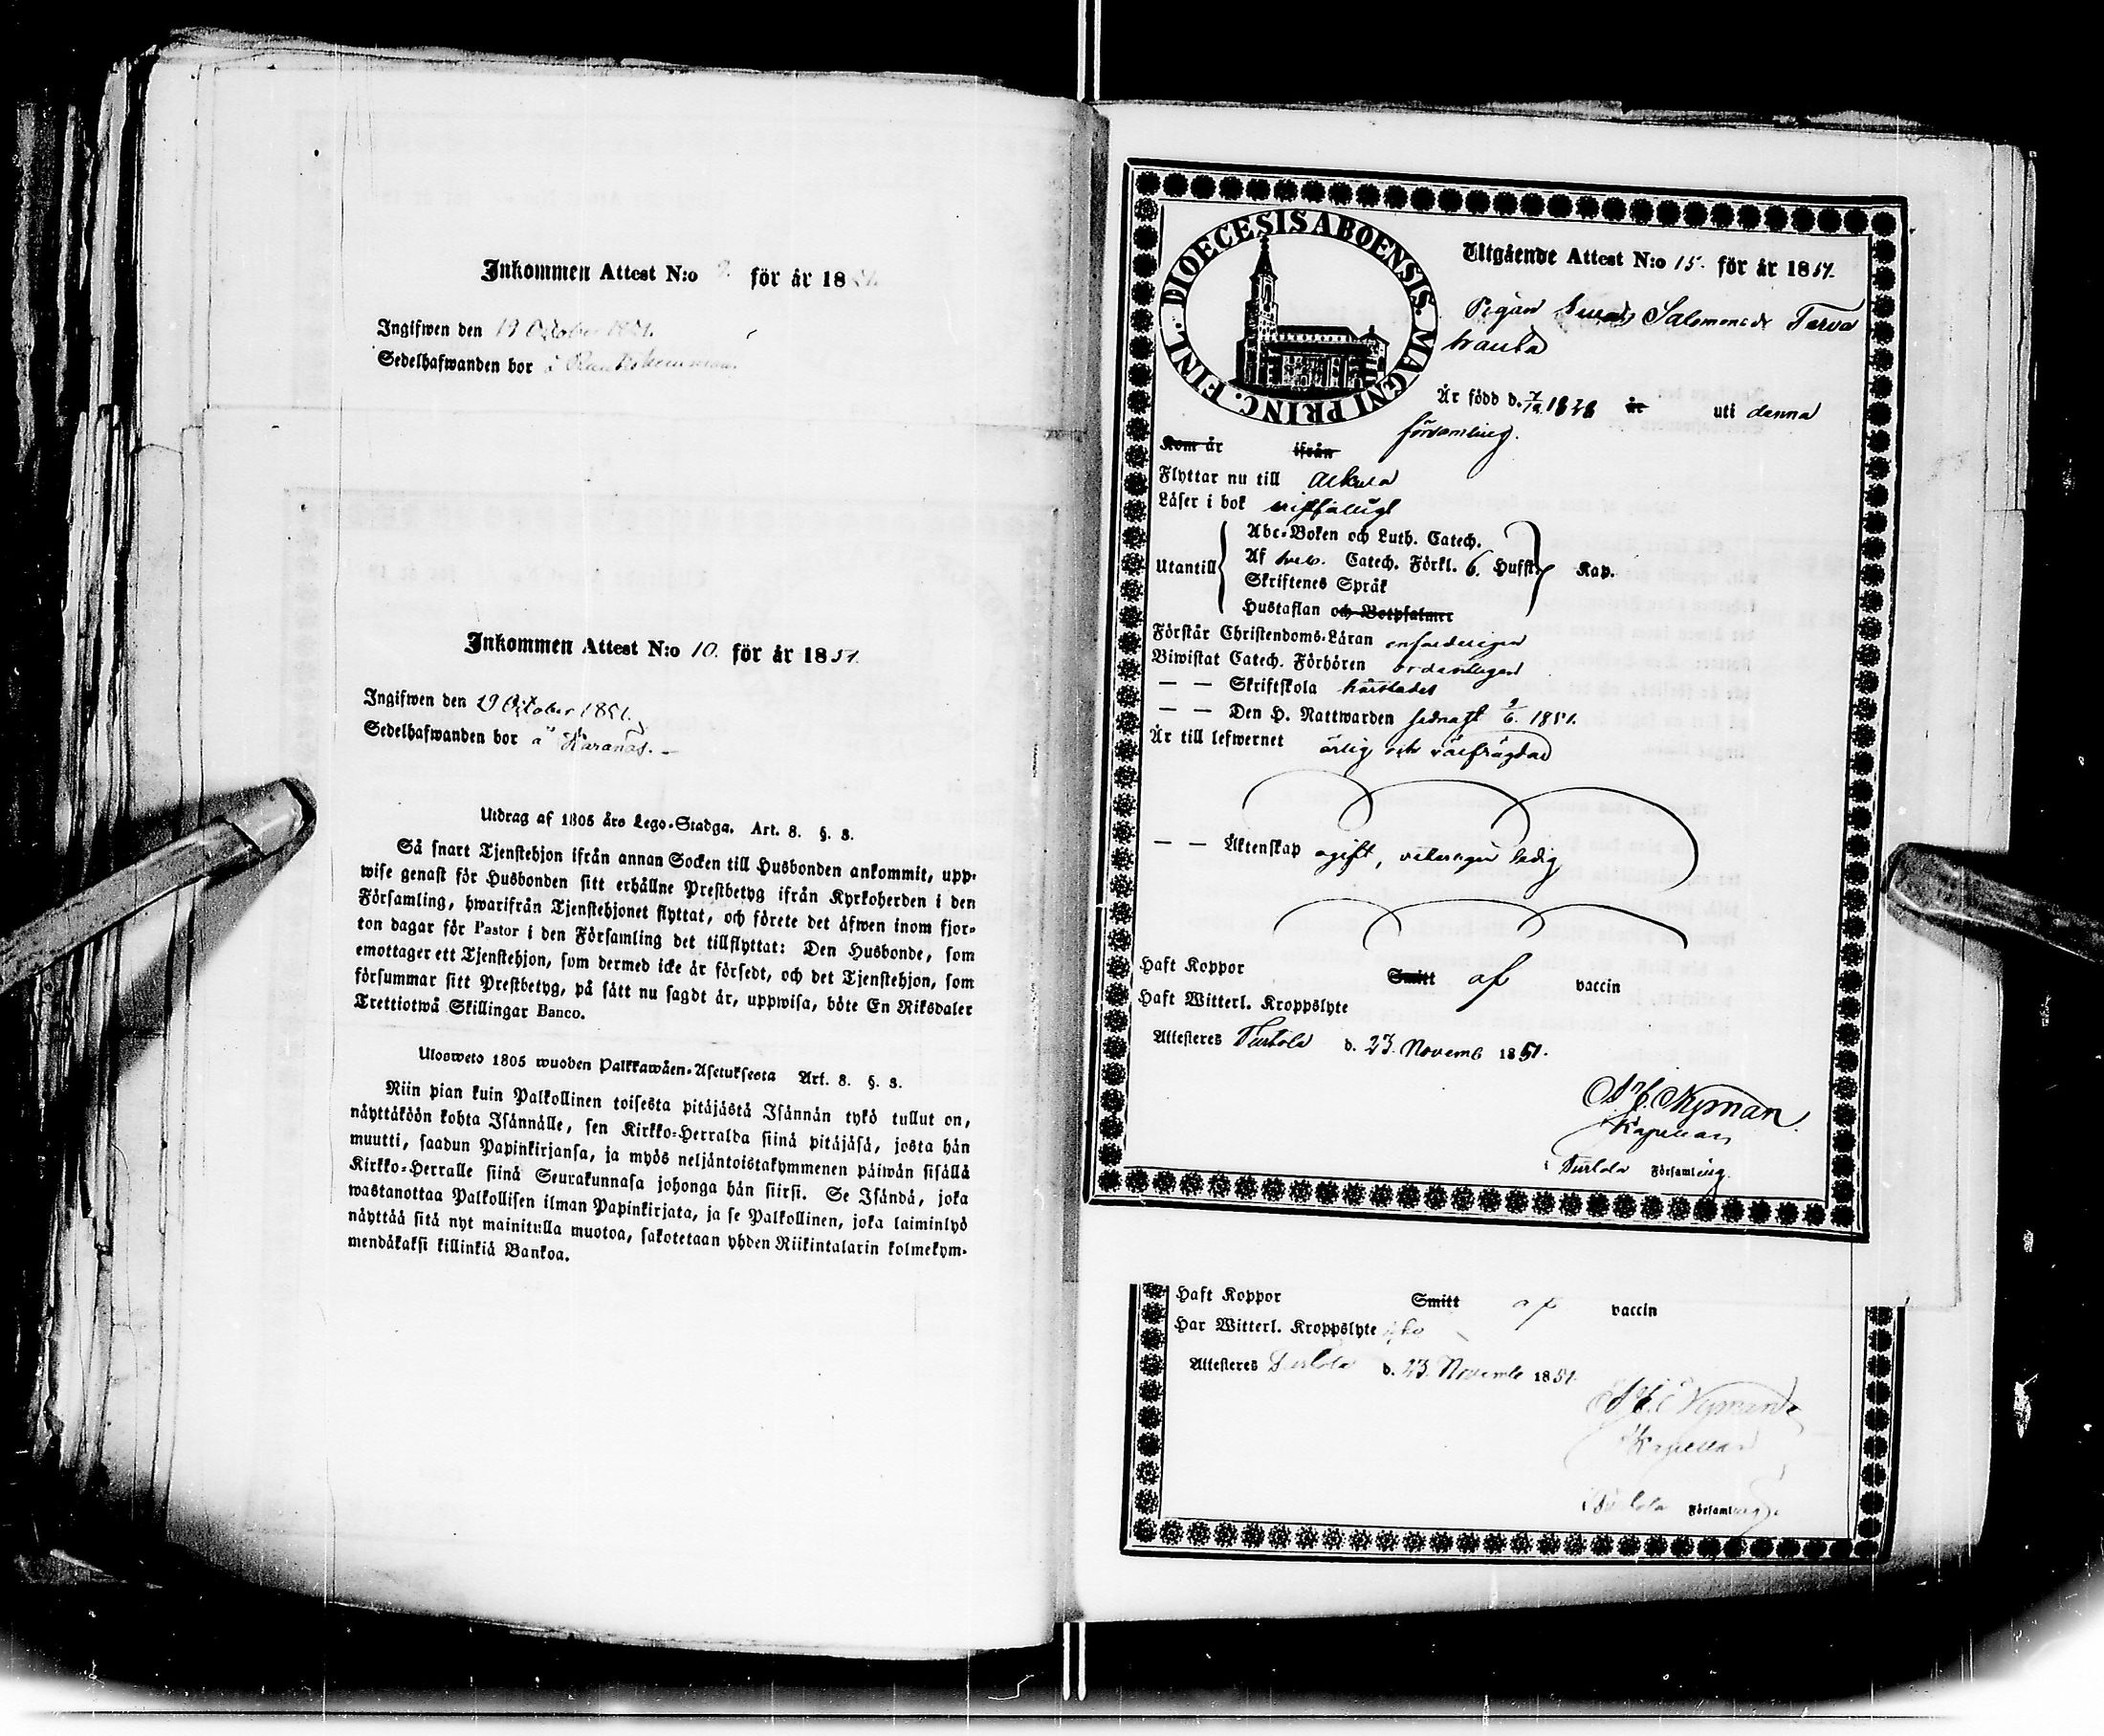 Inkommen Attest N:o 9. för år 1851.
Ingifwen den 19 October 1851.
Sedelhafwanden bor å
Inkommen Attest N:o 10. för år 1851.
Ingifwen den 19 October 1851.
Sedelhafwanden bor å Karanås.
Utdrag af 1805 års Lego-Stadga. Art. 8. §. 8.
Så snart Tjenstehjon ifrån annan Socken till Husbonden ankommit, upp-
wise genast för Husbonden sitt erhållne Prestbetyg ifrån Kyrkoherden i den
Församling, hwarifrån Tjenstehjonet flyttat, och förete det äfwen inom fjor-
ton dagar för Pastor i den Församling det tillflyttat: Den Husbonde, som
emottager ett Tjenstehjon, som dermed icke är försedt, och det Tjenstehjon, som
försummar sitt Prestbetyg, på sätt nu sagdt är, uppwisa, böte En Riksdaler
Trettiotwå Skillingar Banco.
Ulosweto 1805 wuoden Palkkawäen-Asetuksesta Art. 8. §. 8.
Niin pian kuin Palkollinen toisesta pitäjästä Isännän tykö tullut on,
näyttäköön kohta Isännälle, sen Kirkko-Herralda siinä pitäjäsä, josta hän
muutti, saadun Papinkirjansa, ja myös neljäntoistakymmenen päiwän sisällä
Kirkko-Herralle siinä Seurakunnasa johonga hän siirsi. Se Isändä, joka
wastanottaa Palkollisen ilman Papinkirjata, ja se Palkollinen, joka laiminlyö
näyttää sitä nyt mainitulla muotoa, sakotetaan yhden Riikintalarin kolmekym-
mendäkaksi killinkiä Bankoa.
DIOECESIS ABOENSIS. MAGNI PRINC. FINL.
Utgående Attest N:o 15. för år 1851.
Pigan Salomonsdr Terva
hauta
Är född d. 1828 år uti denna
församling.
Kom år ifrån
Flyttar nu till Alkula
Läser i bok
Utantill
Abc-Boken och Luth. Catech.
Af Catech. Förkl. 6. Hufst. Kap.
Skriftenes Språk
Hustaflan och Botpsalmer
Förstår Christendoms-Läran enfaldeligen
Biwistat Catech. Förhören ordentligen
— — Skriftskola
— — Den H. Nattwarden sednast 9/6. 1851.
Är till lefwernet ärlig och välfrägdad
— — Äktenskap ogift, ledig
Haft Koppor Smitt af vaccin
Haft Witterl. Kroppslyte
Attesteres Turtola d. 23. Novemb 1851.
Nyman
Kapellan
i Turtola Församling.
Haft Koppor Smitt af vaccin
Har Witterl. Kroppslyte
Attesteres Turtola d. 23 Novemb 1851.
Nyman
Kapellan
i Turtola Församling.